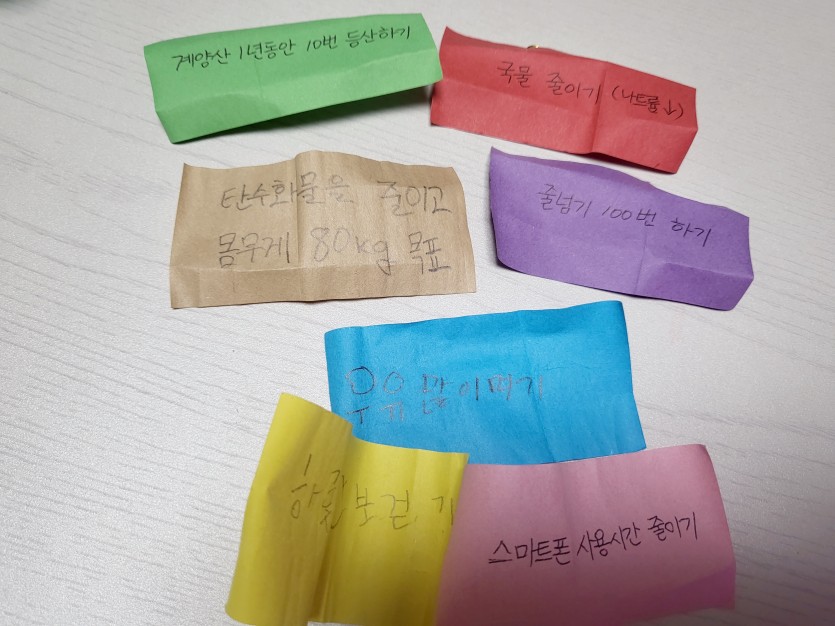 계양산 1년동안 10번 등산하기
국물 줄이기 (나트륨↓)
탄수화물을 줄이고
몸무게 80kg 목표
줄넘기 100번 하기
우유 많이
스마트폰 사용시간 줄이기